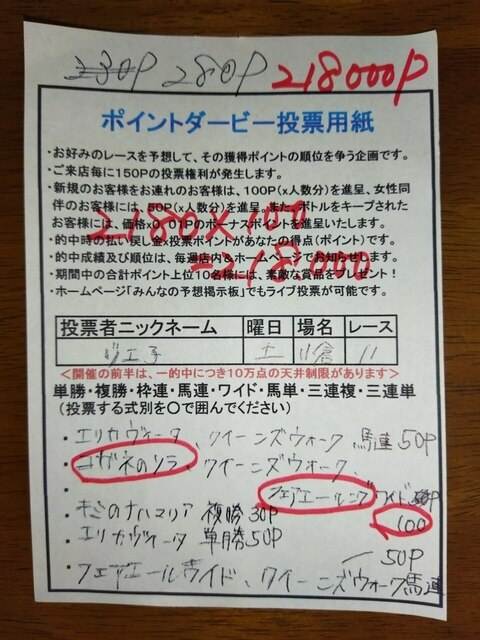 230P 280P 218000P
ポイントダービー投票用紙
・お好みのレースを予想して、その獲得ポイントの順位を争う企画です。
・ご来店毎に150Pの投票権利が発生します。
・新規のお客様をお連れのお客様は、100P(x人数分)を進呈、女性同
伴のお客様には、50P(x人数分)を進呈、また、ボトルをキープされた
お客様には、価格x0.01Pのボーナスポイントを進呈いたします。
・的中時の払い戻し金x投票ポイントがあなたの得点(ポイント)です。
・的中成績及び順位は、毎週店内&ホームページでお知らせします。
・期間中の合計ポイント上位10名様には、素敵な賞品をプレゼント!
・ホームページ「みんなの予想掲示板」でもライブ投票が可能です。
2180×100
=218.000
投票者ニックネーム 曜日 場名 レース
リエ子 土 小倉 11
<開催の前半は、一的中につき10万点の天井制限があります>
単勝・複勝・枠連・馬連・ワイド・馬単・三連複・三連単
(投票する式別を〇で囲んでください)
・エリカヴィータ、クイーンズウォーク 馬連 50P
・コガネのソラ、クイーンズウォーク、
・フェアエールング ワイド 50P
100
・キミのナハマリア 複勝 30P
・エリカヴィータ 単勝 50P
50P
・フェアエールライド、クイーンズウォーク馬連